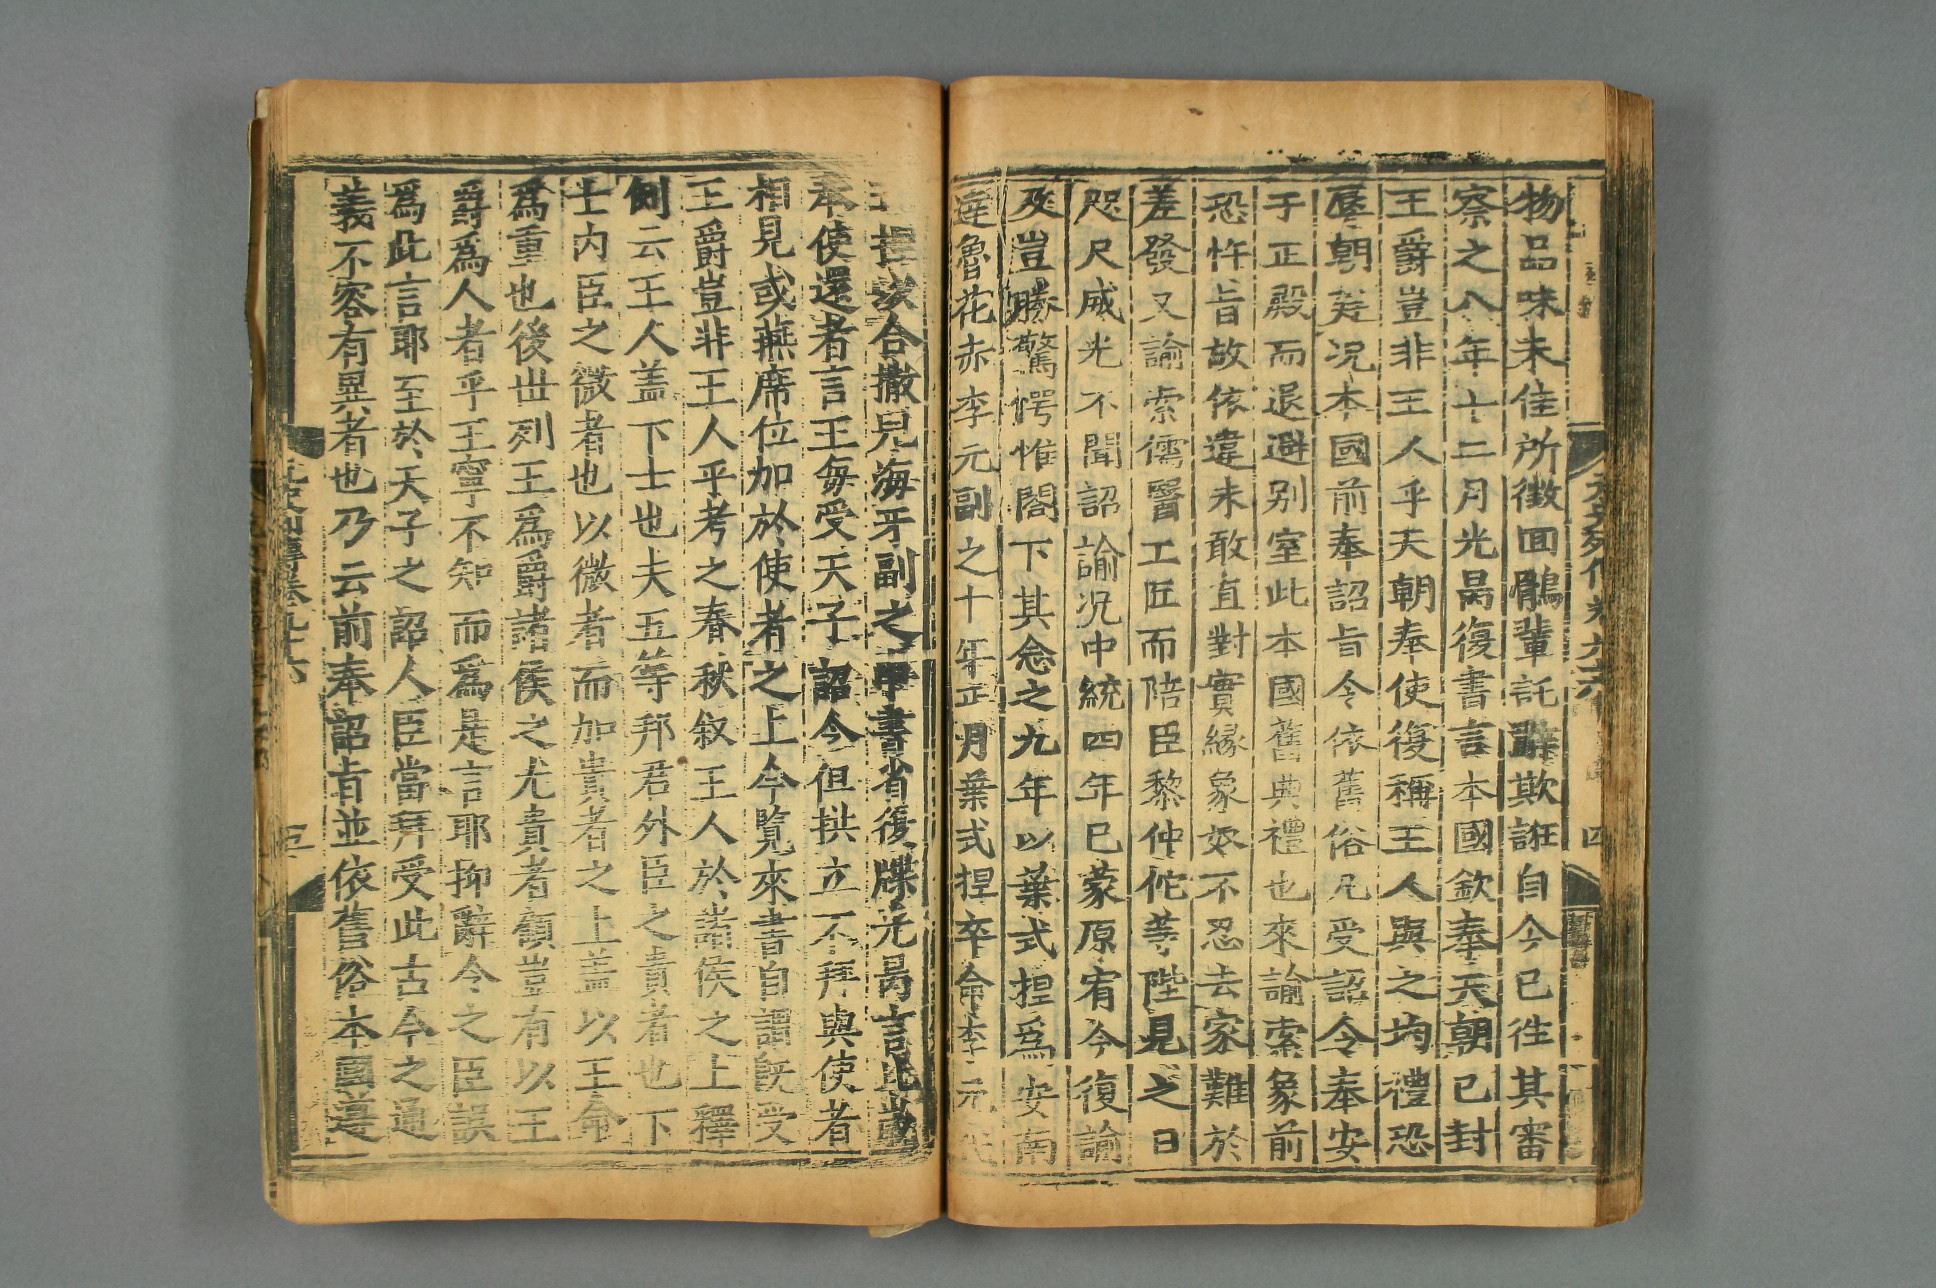 物品味未佳所徵回鶻輩託辭欺誑自今已徃其審
察之八年十二月光昺復書言本國欽奉天朝已封
王爵豈非王人乎天朝奉使復稱王人與之均禮恐
辱朝廷况本國前奉詔旨令依舊俗凡受詔令奉安
于正殿而退避别室此本國舊典禮也來諭索象前
恐忤旨故依違未敢直對實縁象奴不忍去家難於
差發又諭索儒醫工匠而陪臣黎仲佗等陛見之日
咫尺威光不聞詔諭况中統四年已蒙原宥今復諭
及豈勝驚愕惟閤下其念之九年以葉式捏爲安南
達魯花赤李元副之十年正月葉式捏卒命李元代
式捏以合撒兒海牙副之中書省復牒光昺言比歲
奉使還者言王每受天子詔令但拱立不拜與使者
相見或燕席位加於使者之上今覽來書自謂旣受
王爵豈非王人乎考之春秋叙王人於諸侯之上釋
例云王人盖下士也夫五等邦君外臣之貴者也下
士内臣之微者也以微者而加貴者之上盖以王命
爲重也後世列王爲爵諸侯之尤貴者顧豈有以王
爵爲人者乎王寧不知而爲是言耶抑辭令之臣誤
爲此言耶至於天子之詔人臣當拜受此古今之通
義不容有異者也乃云前奉詔旨並依舊俗本國遵
元史列傳卷九十六
五